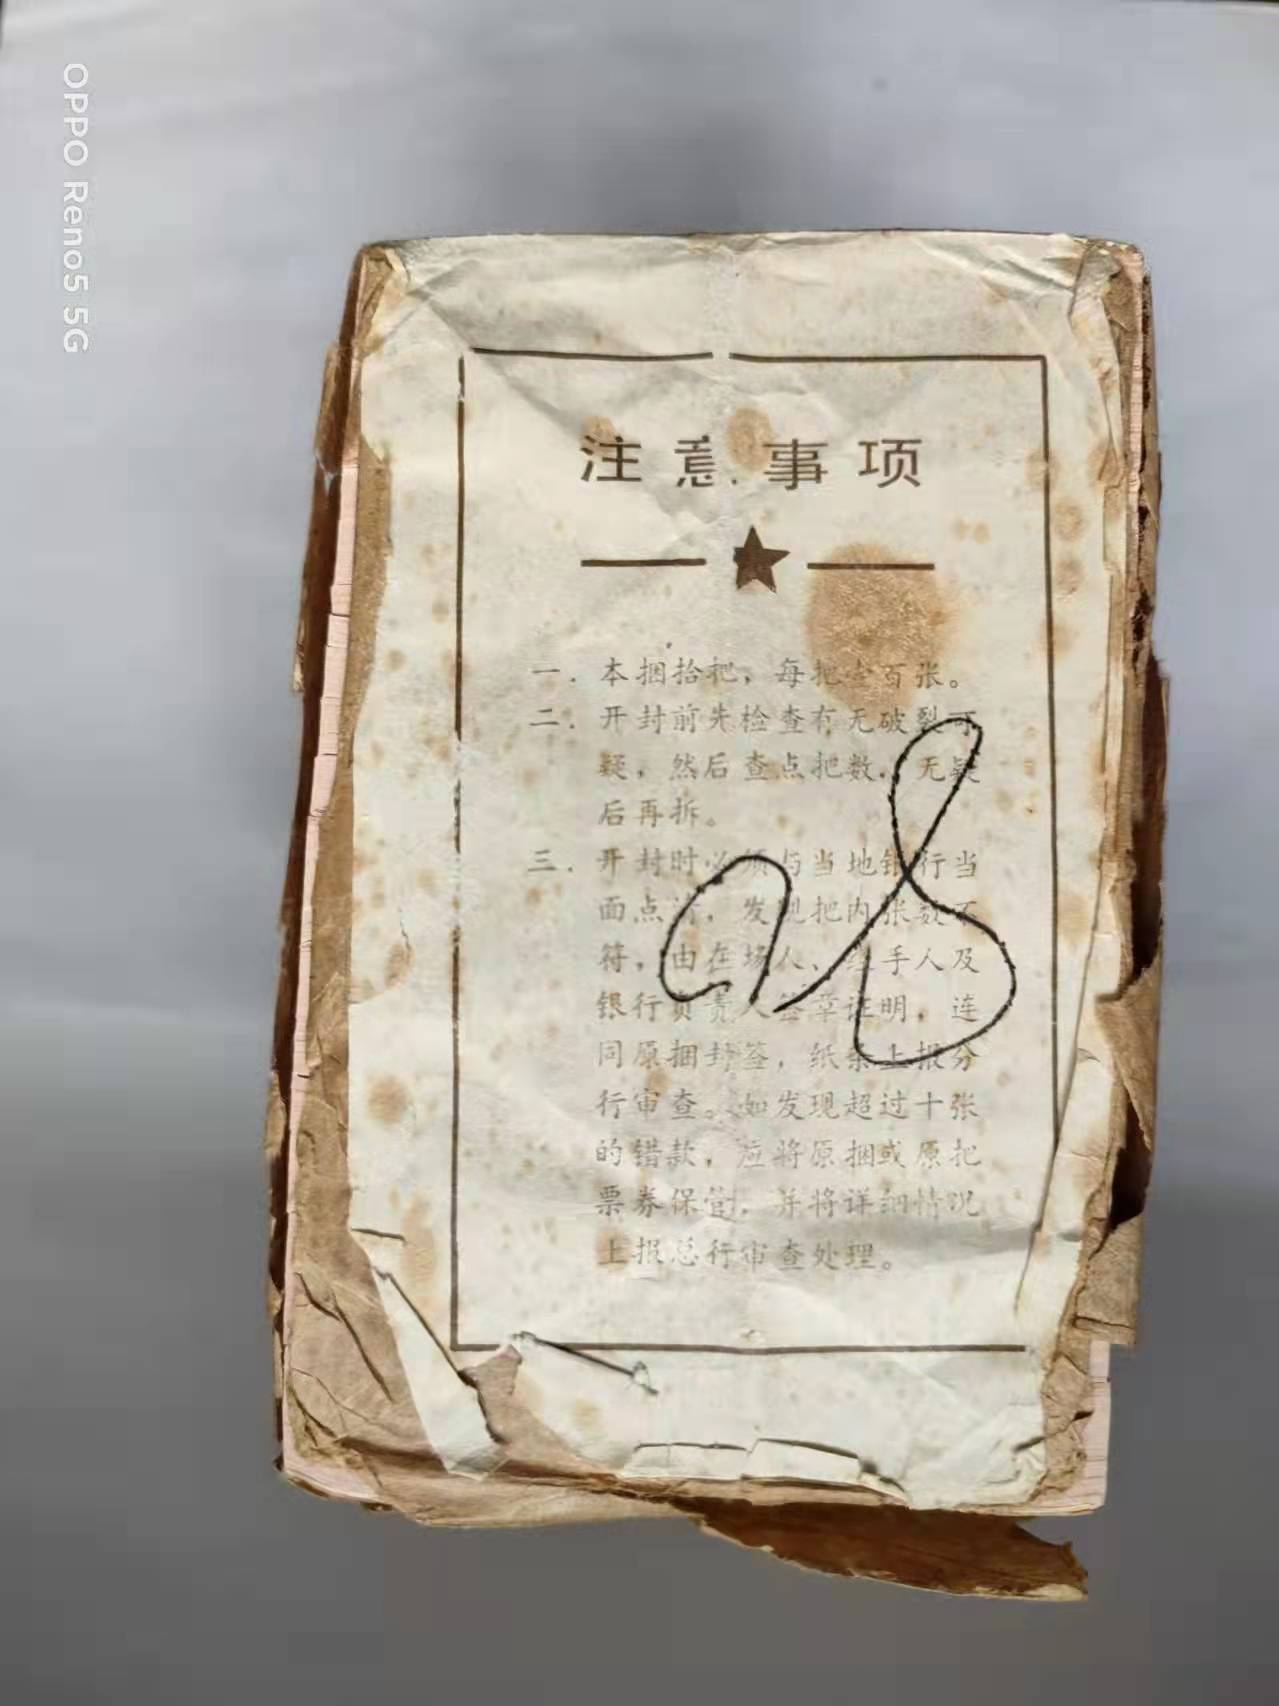 OPPO Reno5 5G
注意事项
一. 本捆拾把，每把壹百张。
二. 开封前先检查有无破裂可
疑，然后查点把数，无疑
后再拆。
三. 开封时必须与当地银行当
面点清，发现把内张数不
符，由在场人、经手人及
银行负责人签章证明，连
同原捆封签，纸条上报分
行审查。如发现超过十张
的错款，应将原捆或原把
票券保管，并将详细情况
上报总行审查处理。